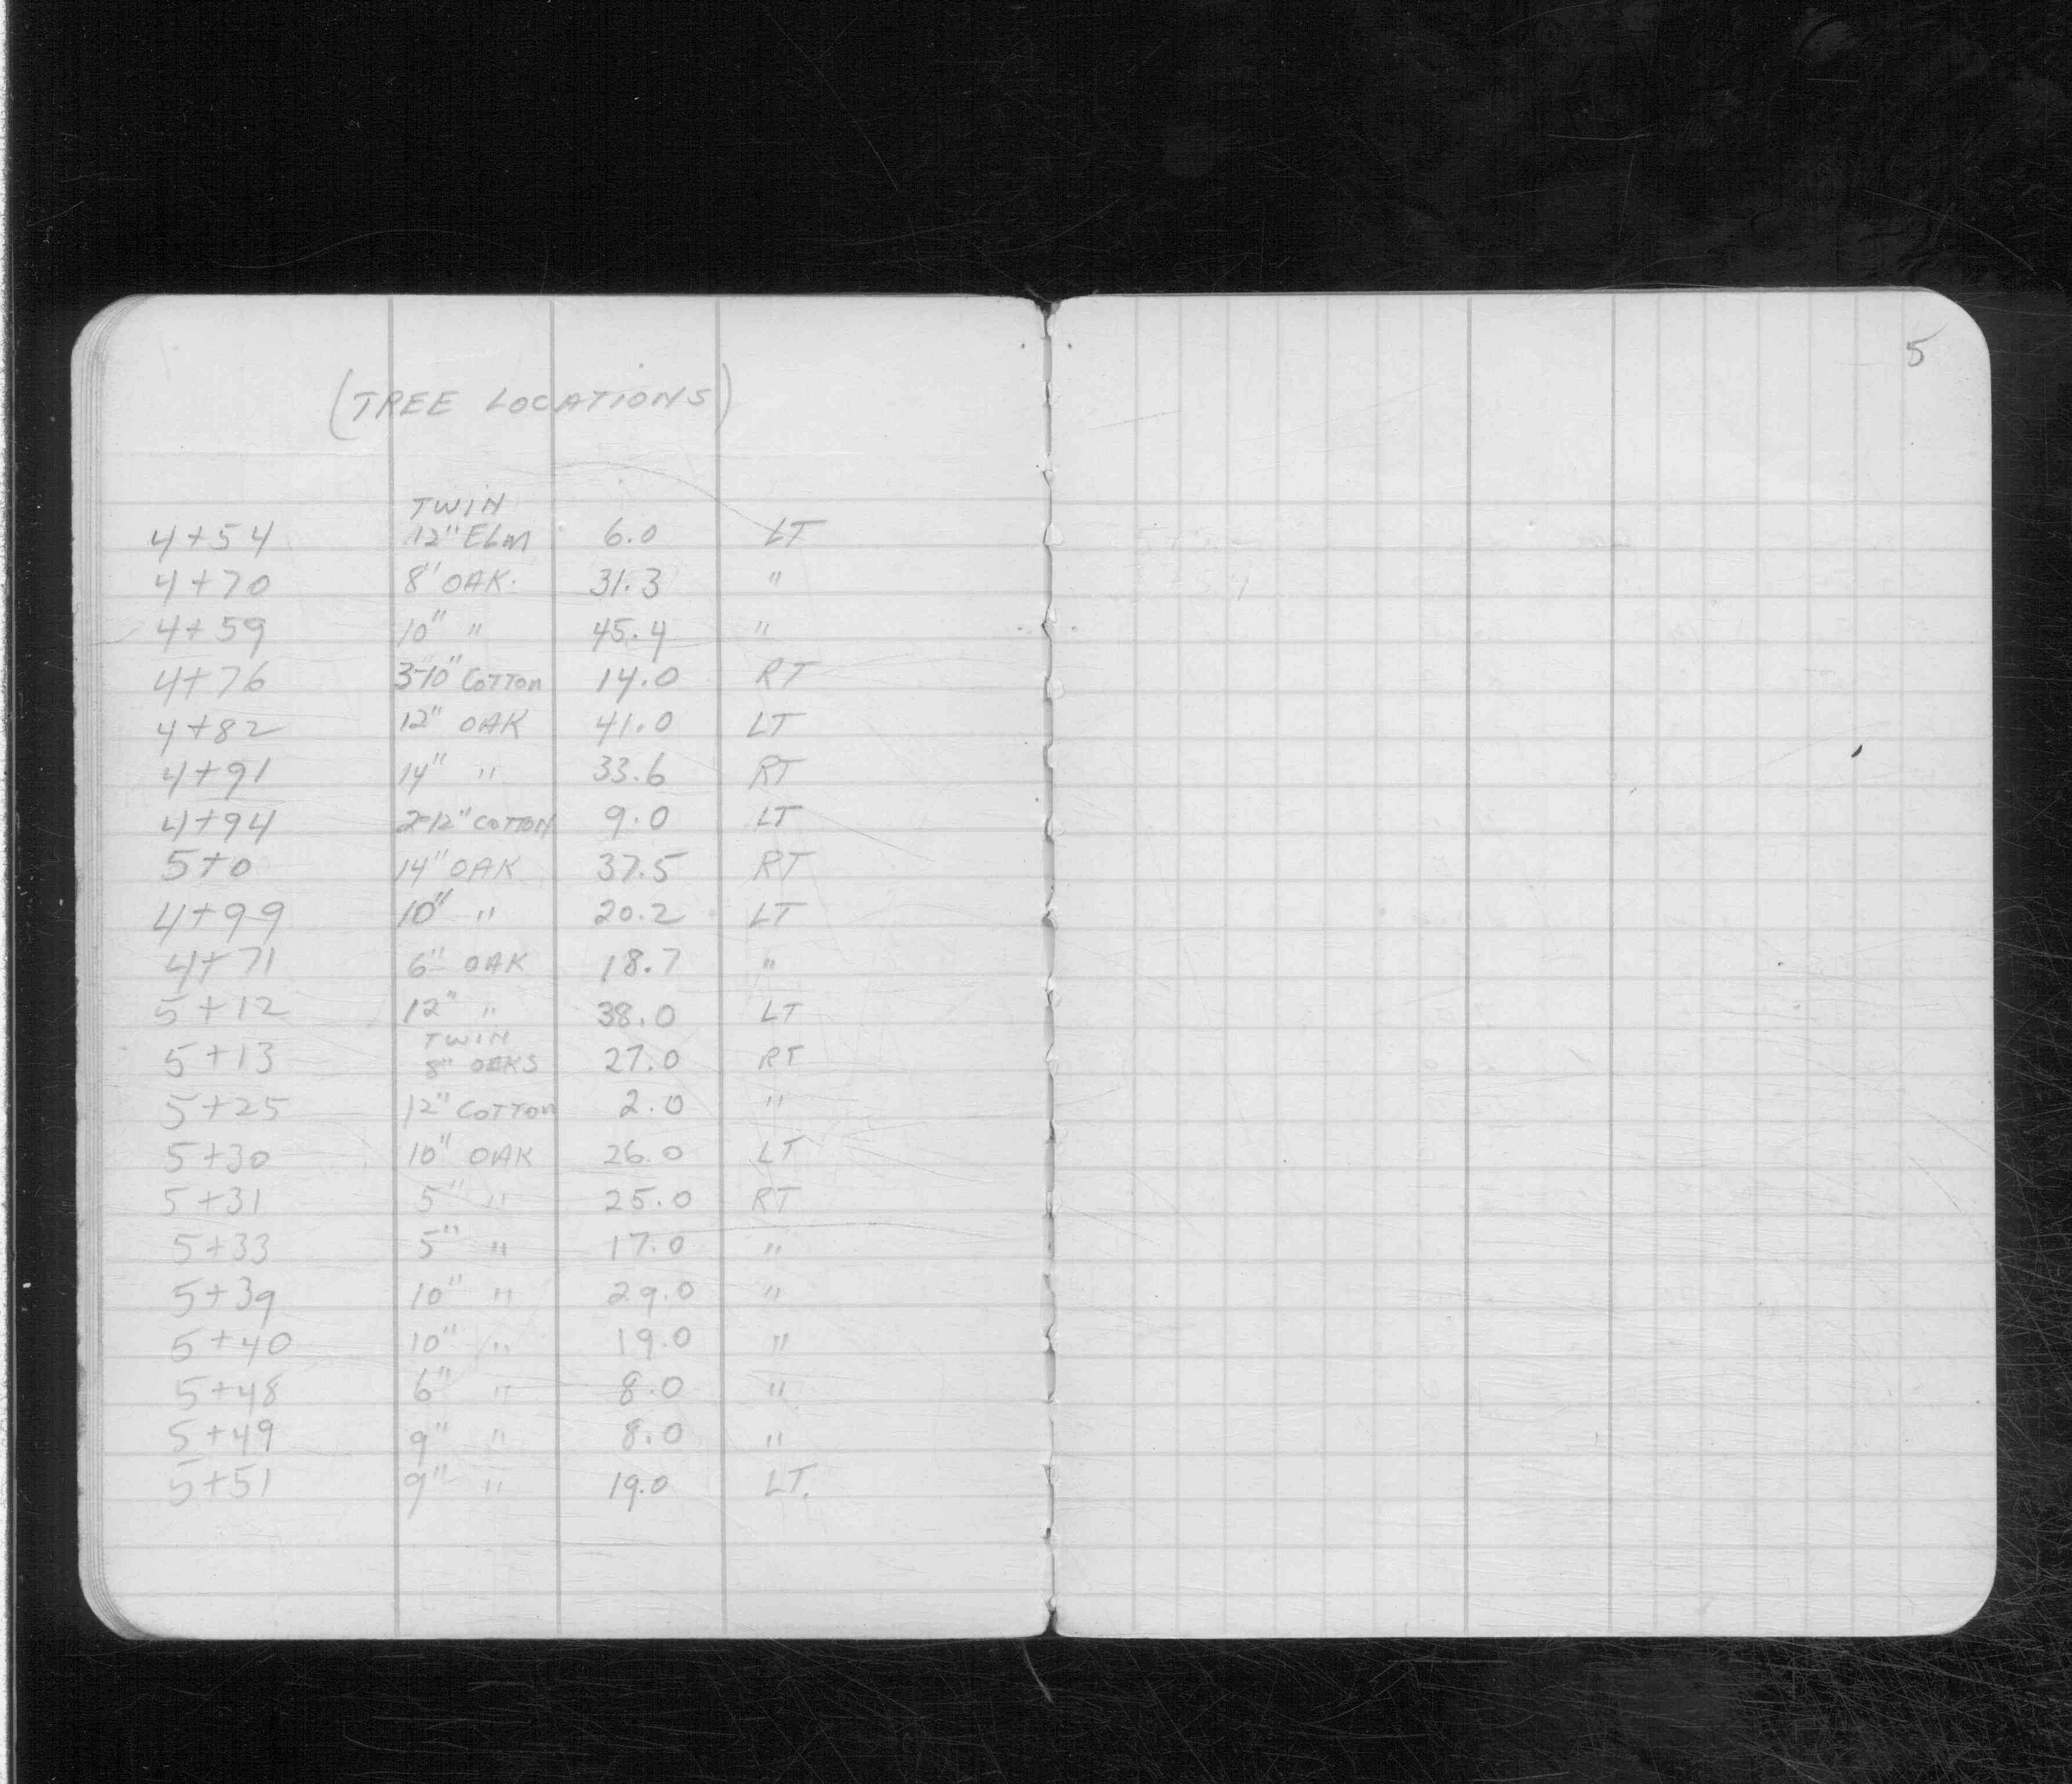 5
(TREE LOCATIONS)
TWIN
4+54 12" ELM 6.0 LT
4+70 8" OAK. 31.3 "
4+59 10" " 45.4 "
4+76 3-10" COTTON 14.0 RT
4+82 12" OAK 41.0 LT
4+91 14" " 33.6 RT
4+94 2-12" COTTON 9.0 LT
5+0 14" OAK 37.5 RT
4+99 10" " 20.2 LT
4+71 6" OAK 18.7 "
5+12 12" " 38.0 LT
TWIN
5+13 8" OAKS 27.0 RT
5+25 12" COTTON 2.0 "
5+30 10" OAK 26.0 LT
5+31 5" " 25.0 RT
5+33 5" " 17.0 "
5+39 10" " 29.0 "
5+40 10" " 19.0 "
5+48 6" " 8.0 "
5+49 9" " 8.0 "
5+51 9" " 19.0 LT.